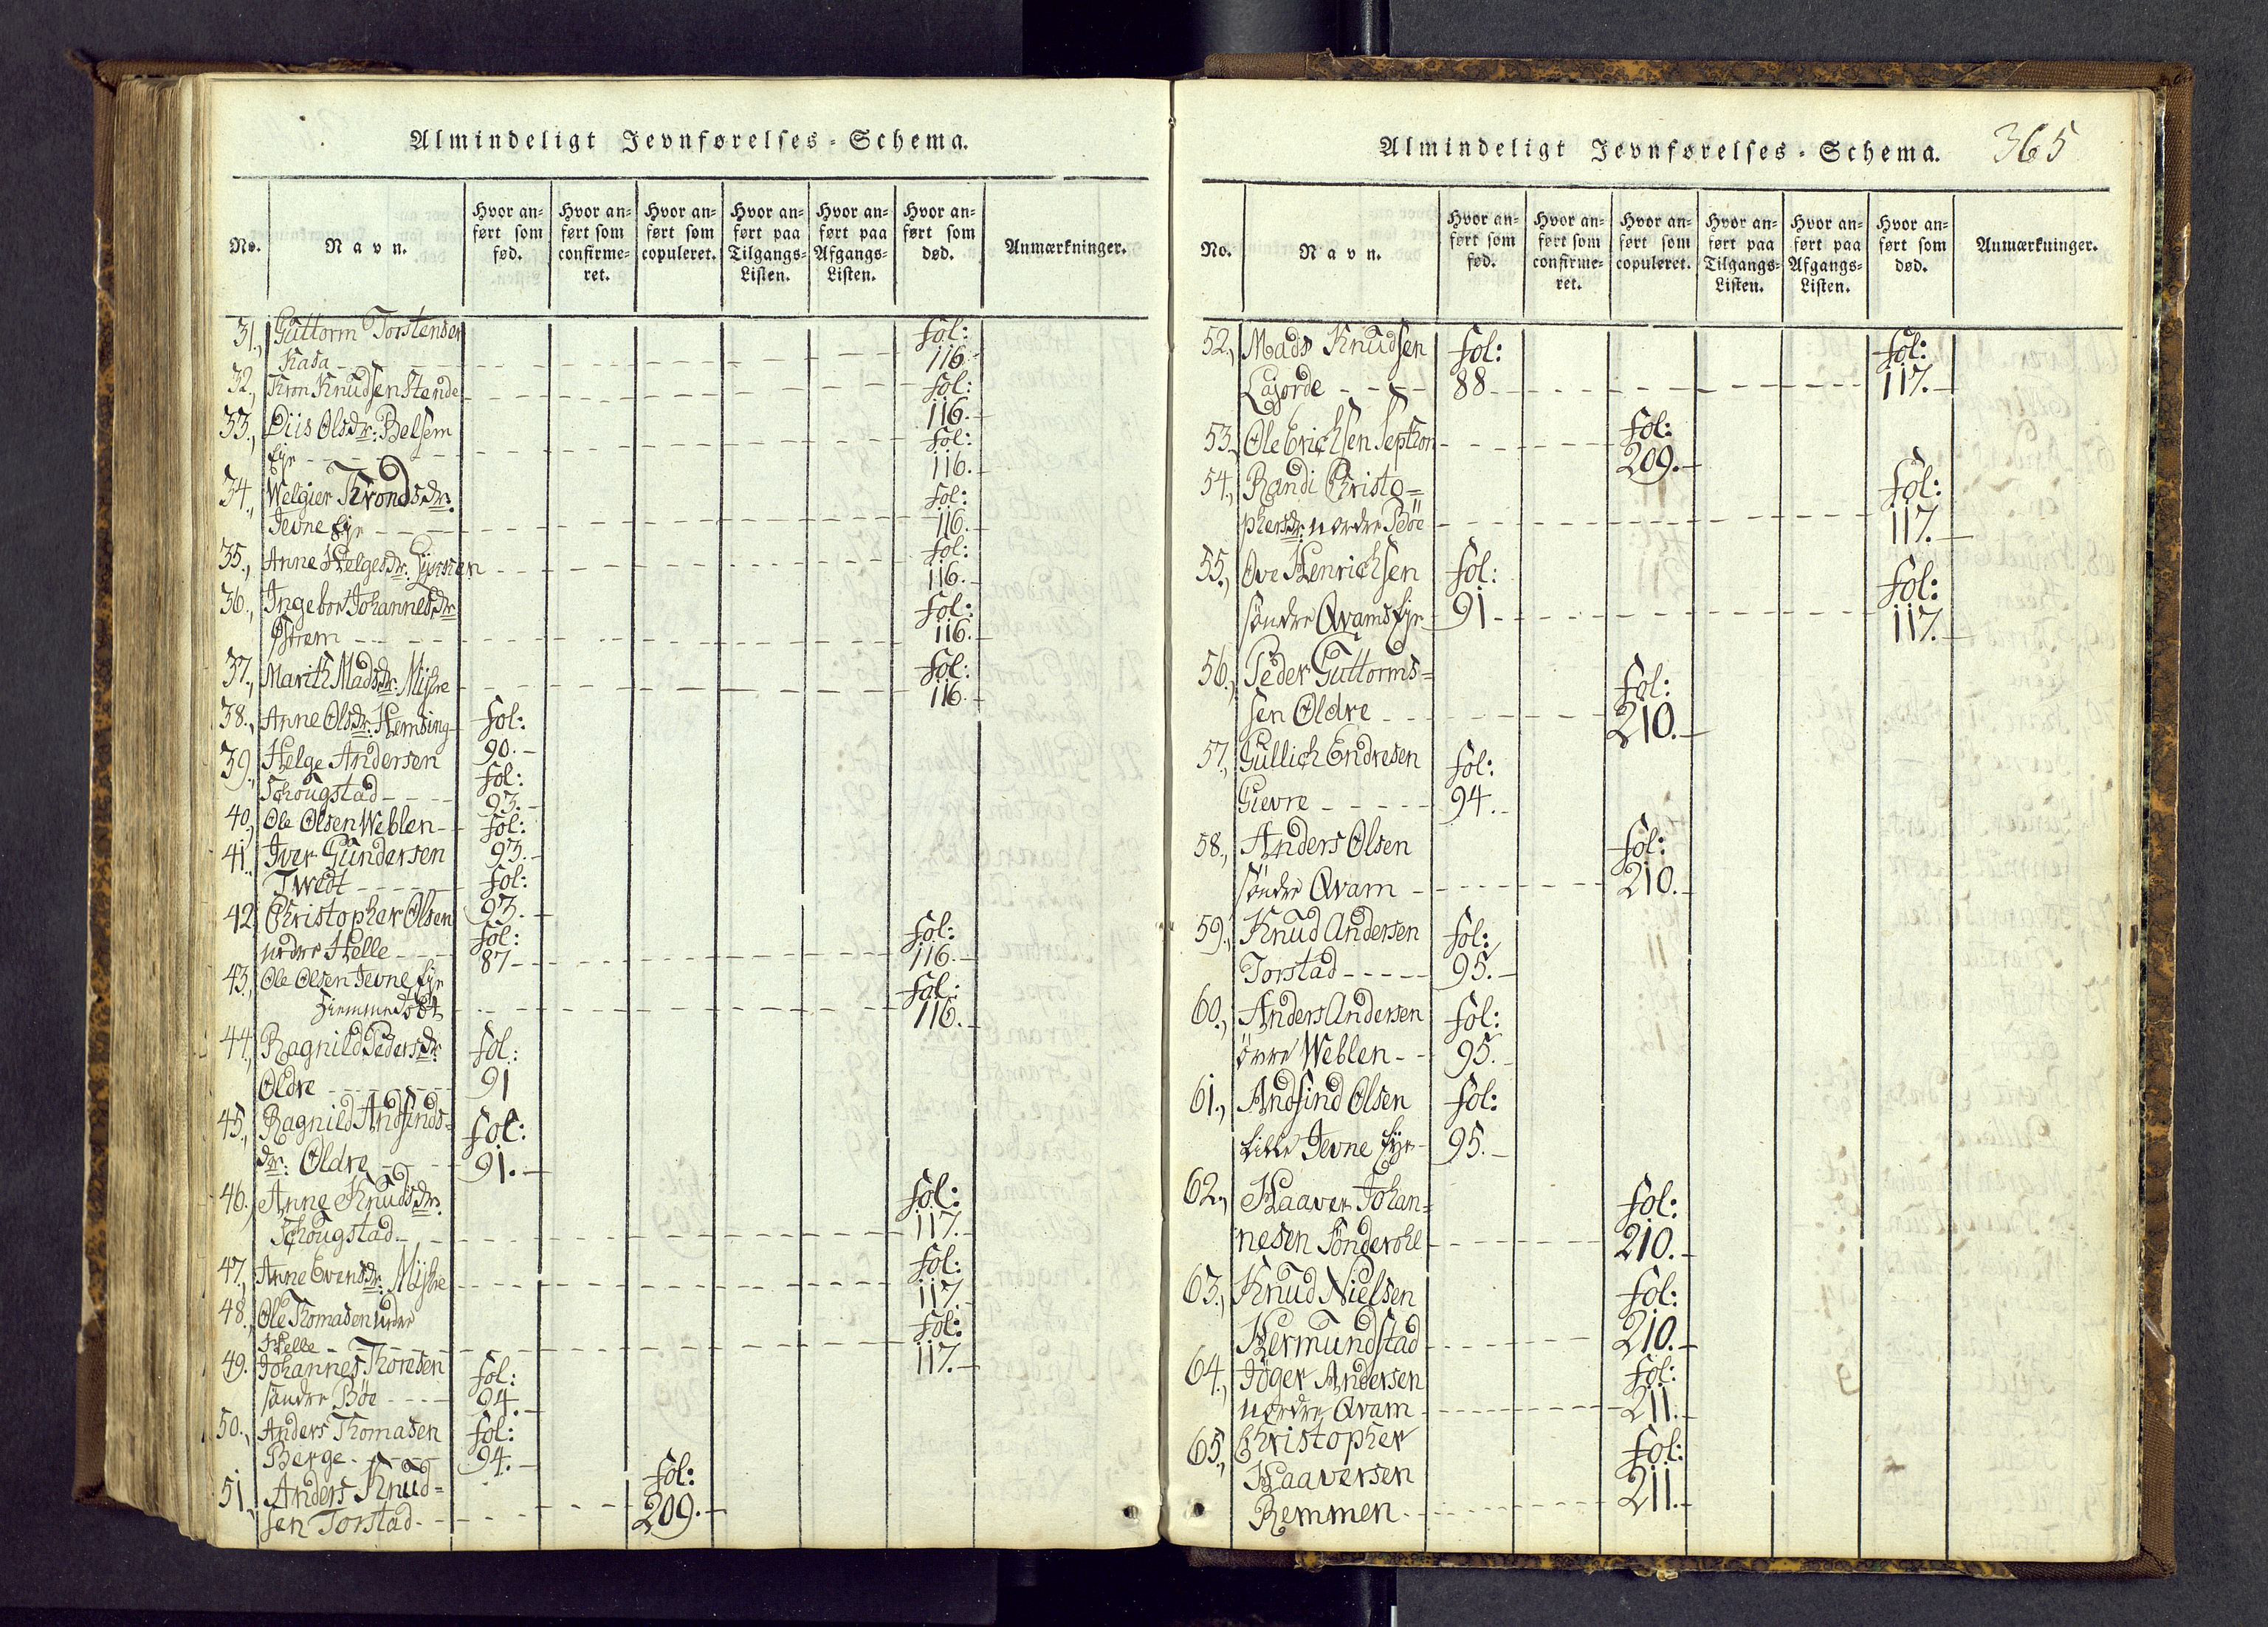 Almindeligt Jevnførelses-Schema.
No.
Navn.
Hvor an-
ført som
fød.
Hvor an-
ført som
confirme-
ret.
Hvor an-
ført som
copuleret.
Hvor an-
ført paa
Tilgangs-
Listen.
Hvor an-
ført paa
Afgangs-
Listen.
Hvor an-
ført som
død.
Anmærkninger.
31., Guttorm Torstensen fol:
Kasa 116.
32., Knudsen Stande fol:
116.
33., Olsdr: Belsem fol:
Eje 116.
34., Welgier Tronds dr: fol:
Jevne Eje 116.
35., Anne Helgesdr: fol:
116.
36., Ingebor Johannesdr: fol:
Østrem 116.
37., Marith Madsdr: Mÿhre fol:
116.
38., Anne Olsdr: Hemsing fol:
90.
39., Helge Andersen fol:
Schougstad 93.
40., Ole Olsen Weblen fol:
93.
41., Iver Gundersen
Twedt fol:
93.
42., Christopher Olsen fol: fol:
nedre Helle 87 116.
43., Ole Olsen Jevne Eje fol:
116.
44., Ragnild Pedersdr: fol:
Oldre 91
45., Ragnild Andfinds- fol:
dr: Oldre 91.
46., Anne Knuds dr: fol:
Schougstad 117.
47., Anne Evensdr: Mÿhre fol:
117.
48., Ole Thomasen nedre fol:
Helle 117.
49., Johannes Thoresen fol:
søndre Bøe 94.
50., Anders Thomasen fol:
Berge 94.
51., Anders Knud- fol:
sen Torstad 209.
Almindeligt Jevnførelses-Schema. 365
No.
Navn.
Hvor an-
ført som
fød.
Hvor an-
ført som
confirme-
ret.
Hvor an-
ført som
copuleret.
Hvor an-
ført paa
Tilgangs-
Listen.
Hvor an-
ført paa
Afgangs-
Listen.
Hvor an-
ført som
død.
Anmærkninger.
52., Mads Knudsen fol: fol:
88. 117.
53., Ole Erichsen fol:
209.
54., Randi Christo= fol:
phersdr: nordre Bøe 117.
55., Ove Henrichsen fol: fol:
søndre Qvams Eje 91 117.
56., Peder Guttorms= fol:
sen Oldre 210.
57., Gullich Endresen fol:
Gievre 94.
58., Anders Olsen fol:
søndre Qvam 210.
59., Knud Andersen fol:
Torstad 95.
60., Anders Andersen fol:
övre Weblen 95.
61., Andfind Olsen fol:
Lille Jevne Eje 95.
62., Haaver Johan= fol:
nesen Sönderohl 210.
63., Knud Nielsen fol:
Hermundstad 210.
64., Jöger Andersen fol:
nordre Qvam 211.
65., Christopher fol:
Haaversen 211.
Remmen